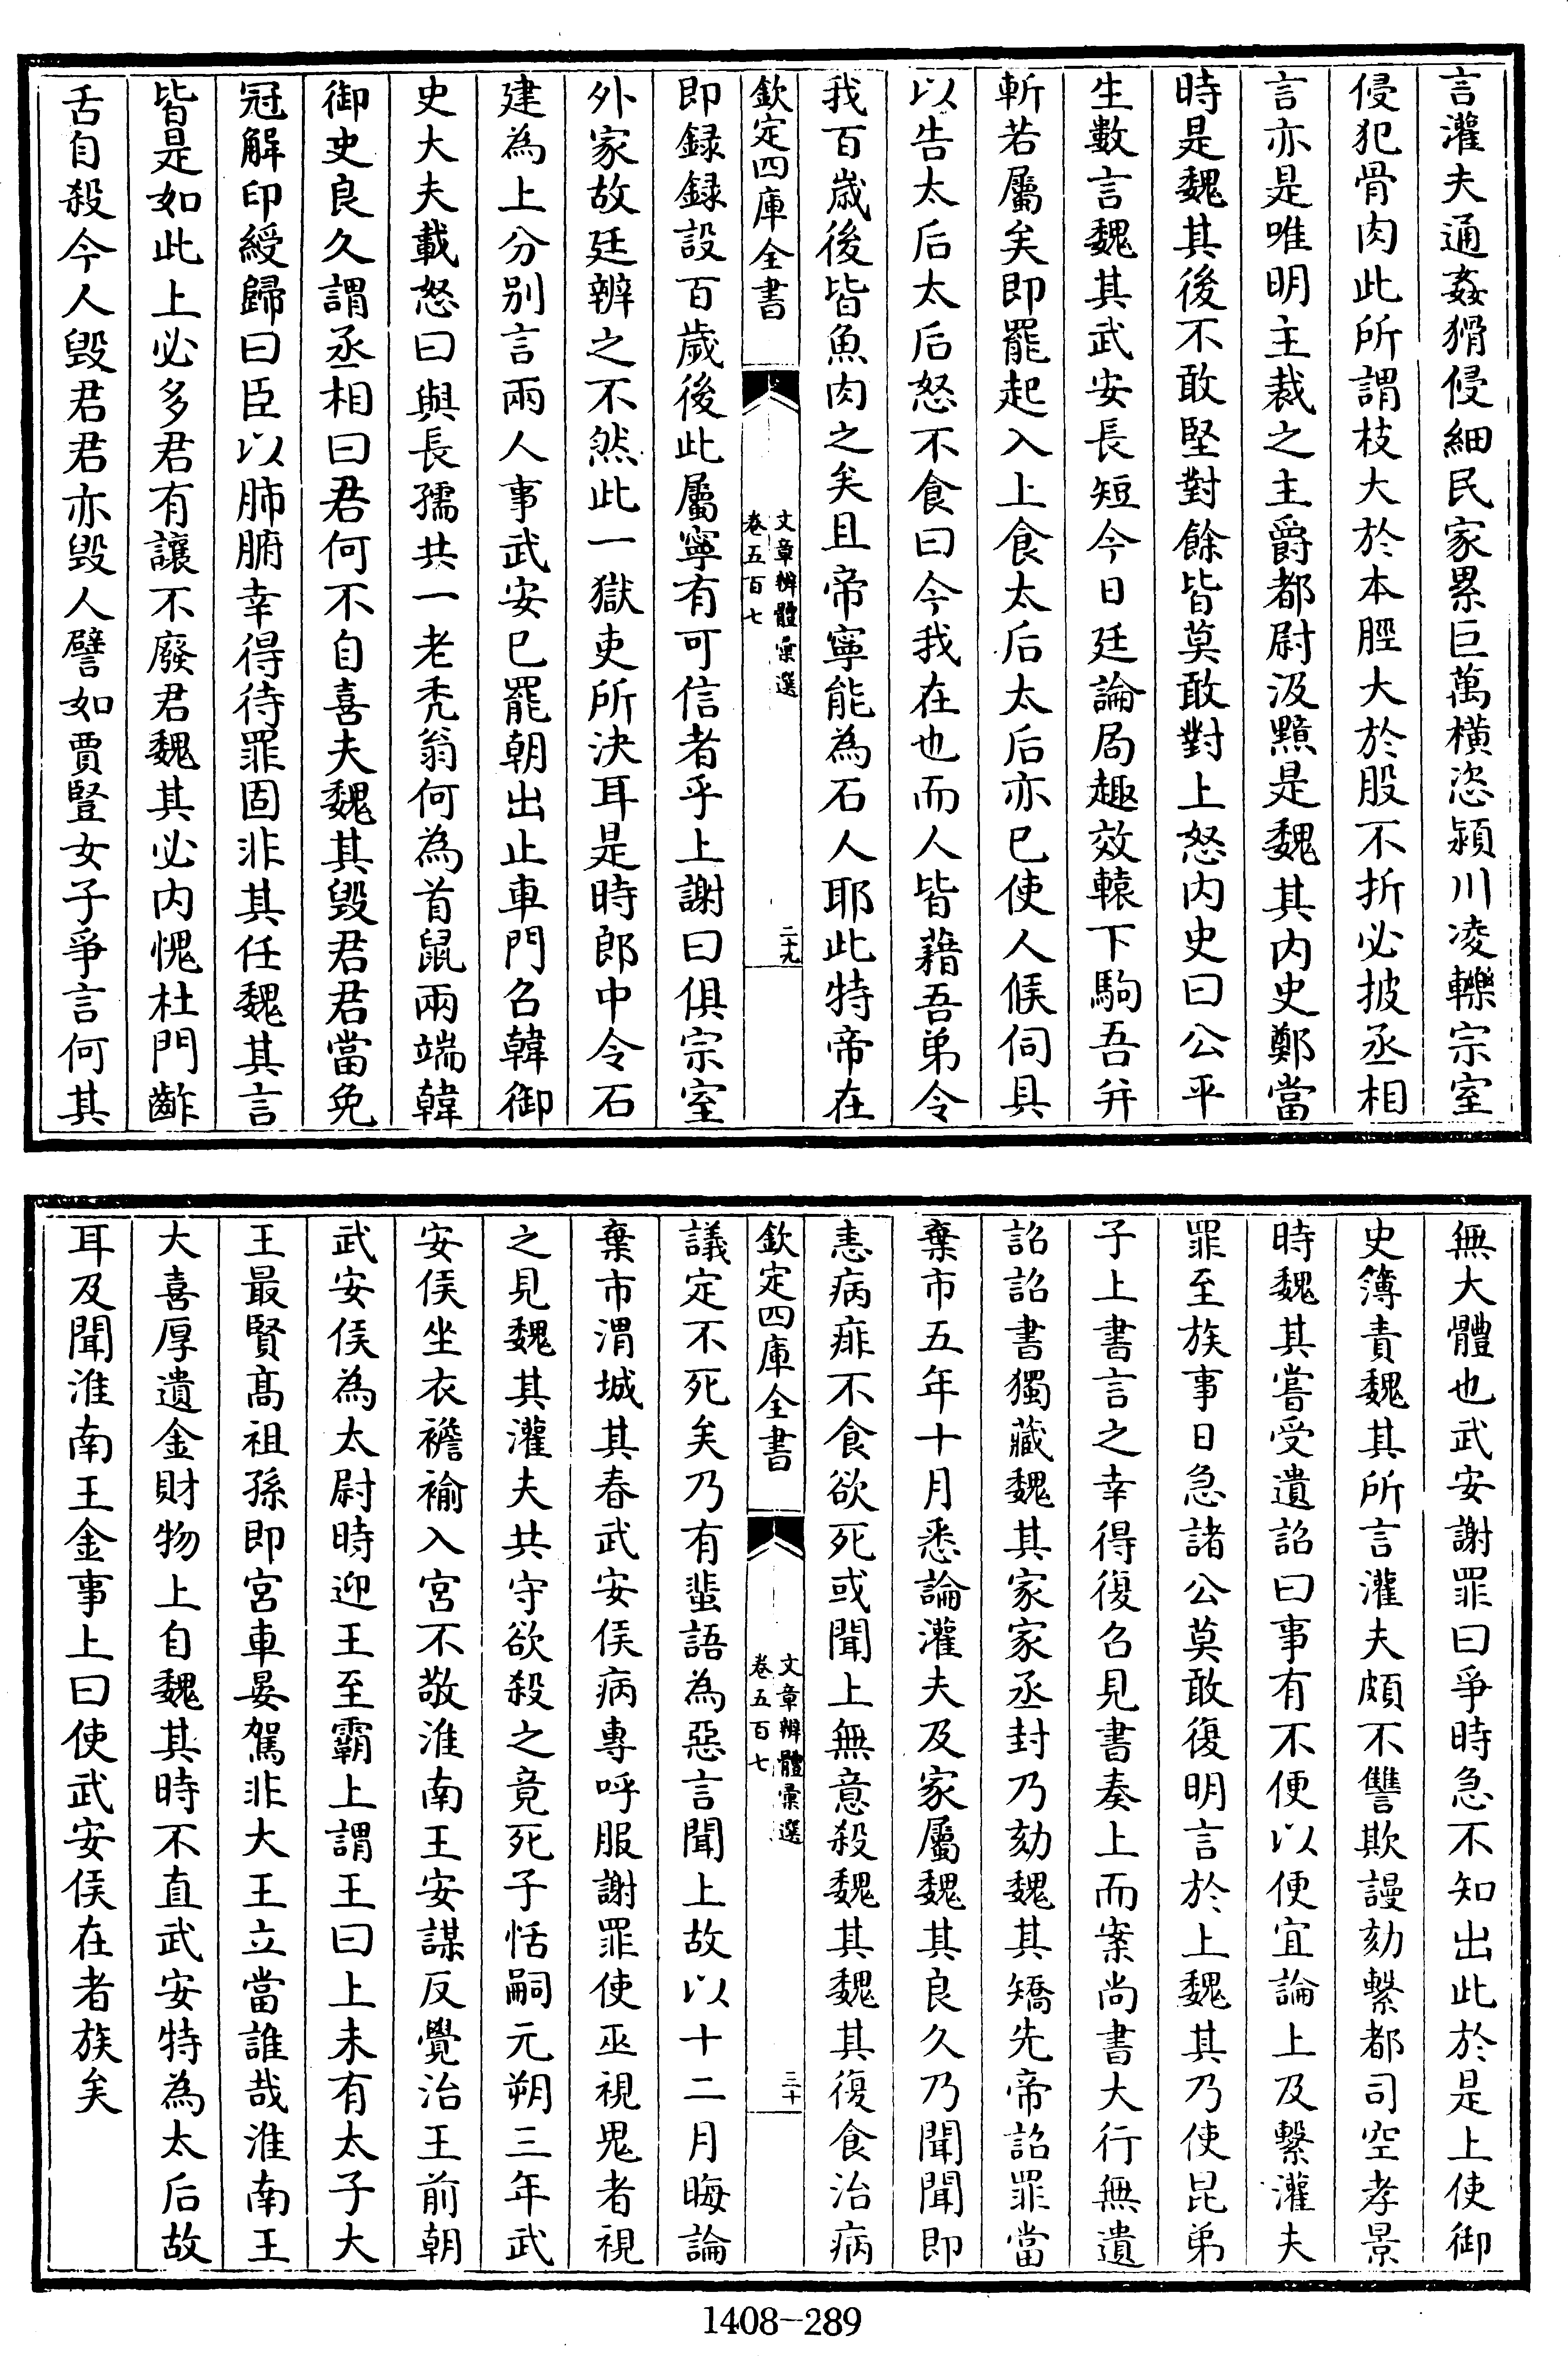 言灌夫通姦猾侵細民家累巨萬橫恣潁川凌轢宗室
侵犯骨肉此所謂枝大於本脛大於股不折必披丞相
言亦是唯明主裁之主爵都尉汲黯是魏其内史鄭當
時是魏其後不敢堅對餘皆莫敢對上怒内史曰公平
生數言魏其武安長短今日廷論局趣效轅下駒吾并
斬若屬矣即罷起入上食太后太后亦已使人候伺具
以告太后太后怒不食曰今我在也而人皆藉吾弟令
我百歲後皆魚肉之矣且帝寧能為石人耶此特帝在
欽定四庫全書
文章辨體彙選
卷五百七
二十九
即録録設百歲後此屬寧有可信者乎上謝曰俱宗室
外家故廷辨之不然此一獄吏所決耳是時郎中令石
建為上分别言兩人事武安已罷朝出止車門召韓御
史大夫載怒曰與長孺共一老禿翁何為首鼠兩端韓
御史良久謂丞相曰君何不自喜夫魏其毀君君當免
冠解印綬歸曰臣以肺腑幸得待罪固非其任魏其言
皆是如此上必多君有讓不廢君魏其必内愧杜門齰
舌自殺今人毀君君亦毀人譬如賈豎女子爭言何其
無大體也武安謝罪曰爭時急不知出此於是上使御
史簿責魏其所言灌夫頗不讐欺謾劾繫都司空孝景
時魏其嘗受遺詔曰事有不便以便宜論上及繫灌夫
罪至族事日急諸公莫敢復明言於上魏其乃使昆弟
子上書言之幸得復召見書奏上而案尚書大行無遺
詔詔書獨藏魏其家家丞封乃劾魏其矯先帝詔罪當
棄市五年十月悉論灌夫及家屬魏其良久乃聞聞即
恚病痱不食欲死或聞上無意殺魏其魏其復食治病
欽定四庫全書
文章辨體彙選
卷五百七
三十
議定不死矣乃有蜚語為惡言聞上故以十二月晦論
棄市渭城其春武安侯病專呼服謝罪使巫視鬼者視
之見魏其灌夫共守欲殺之竟死子恬嗣元朔三年武
安侯坐衣襜褕入宮不敬淮南王安謀反覺治王前朝
武安侯為太尉時迎王至霸上謂王曰上未有太子大
王最賢髙祖孫即宮車晏駕非大王立當誰哉淮南王
大喜厚遺金財物上自魏其時不直武安特為太后故
耳及聞淮南王金事上曰使武安侯在者族矣
1408-289